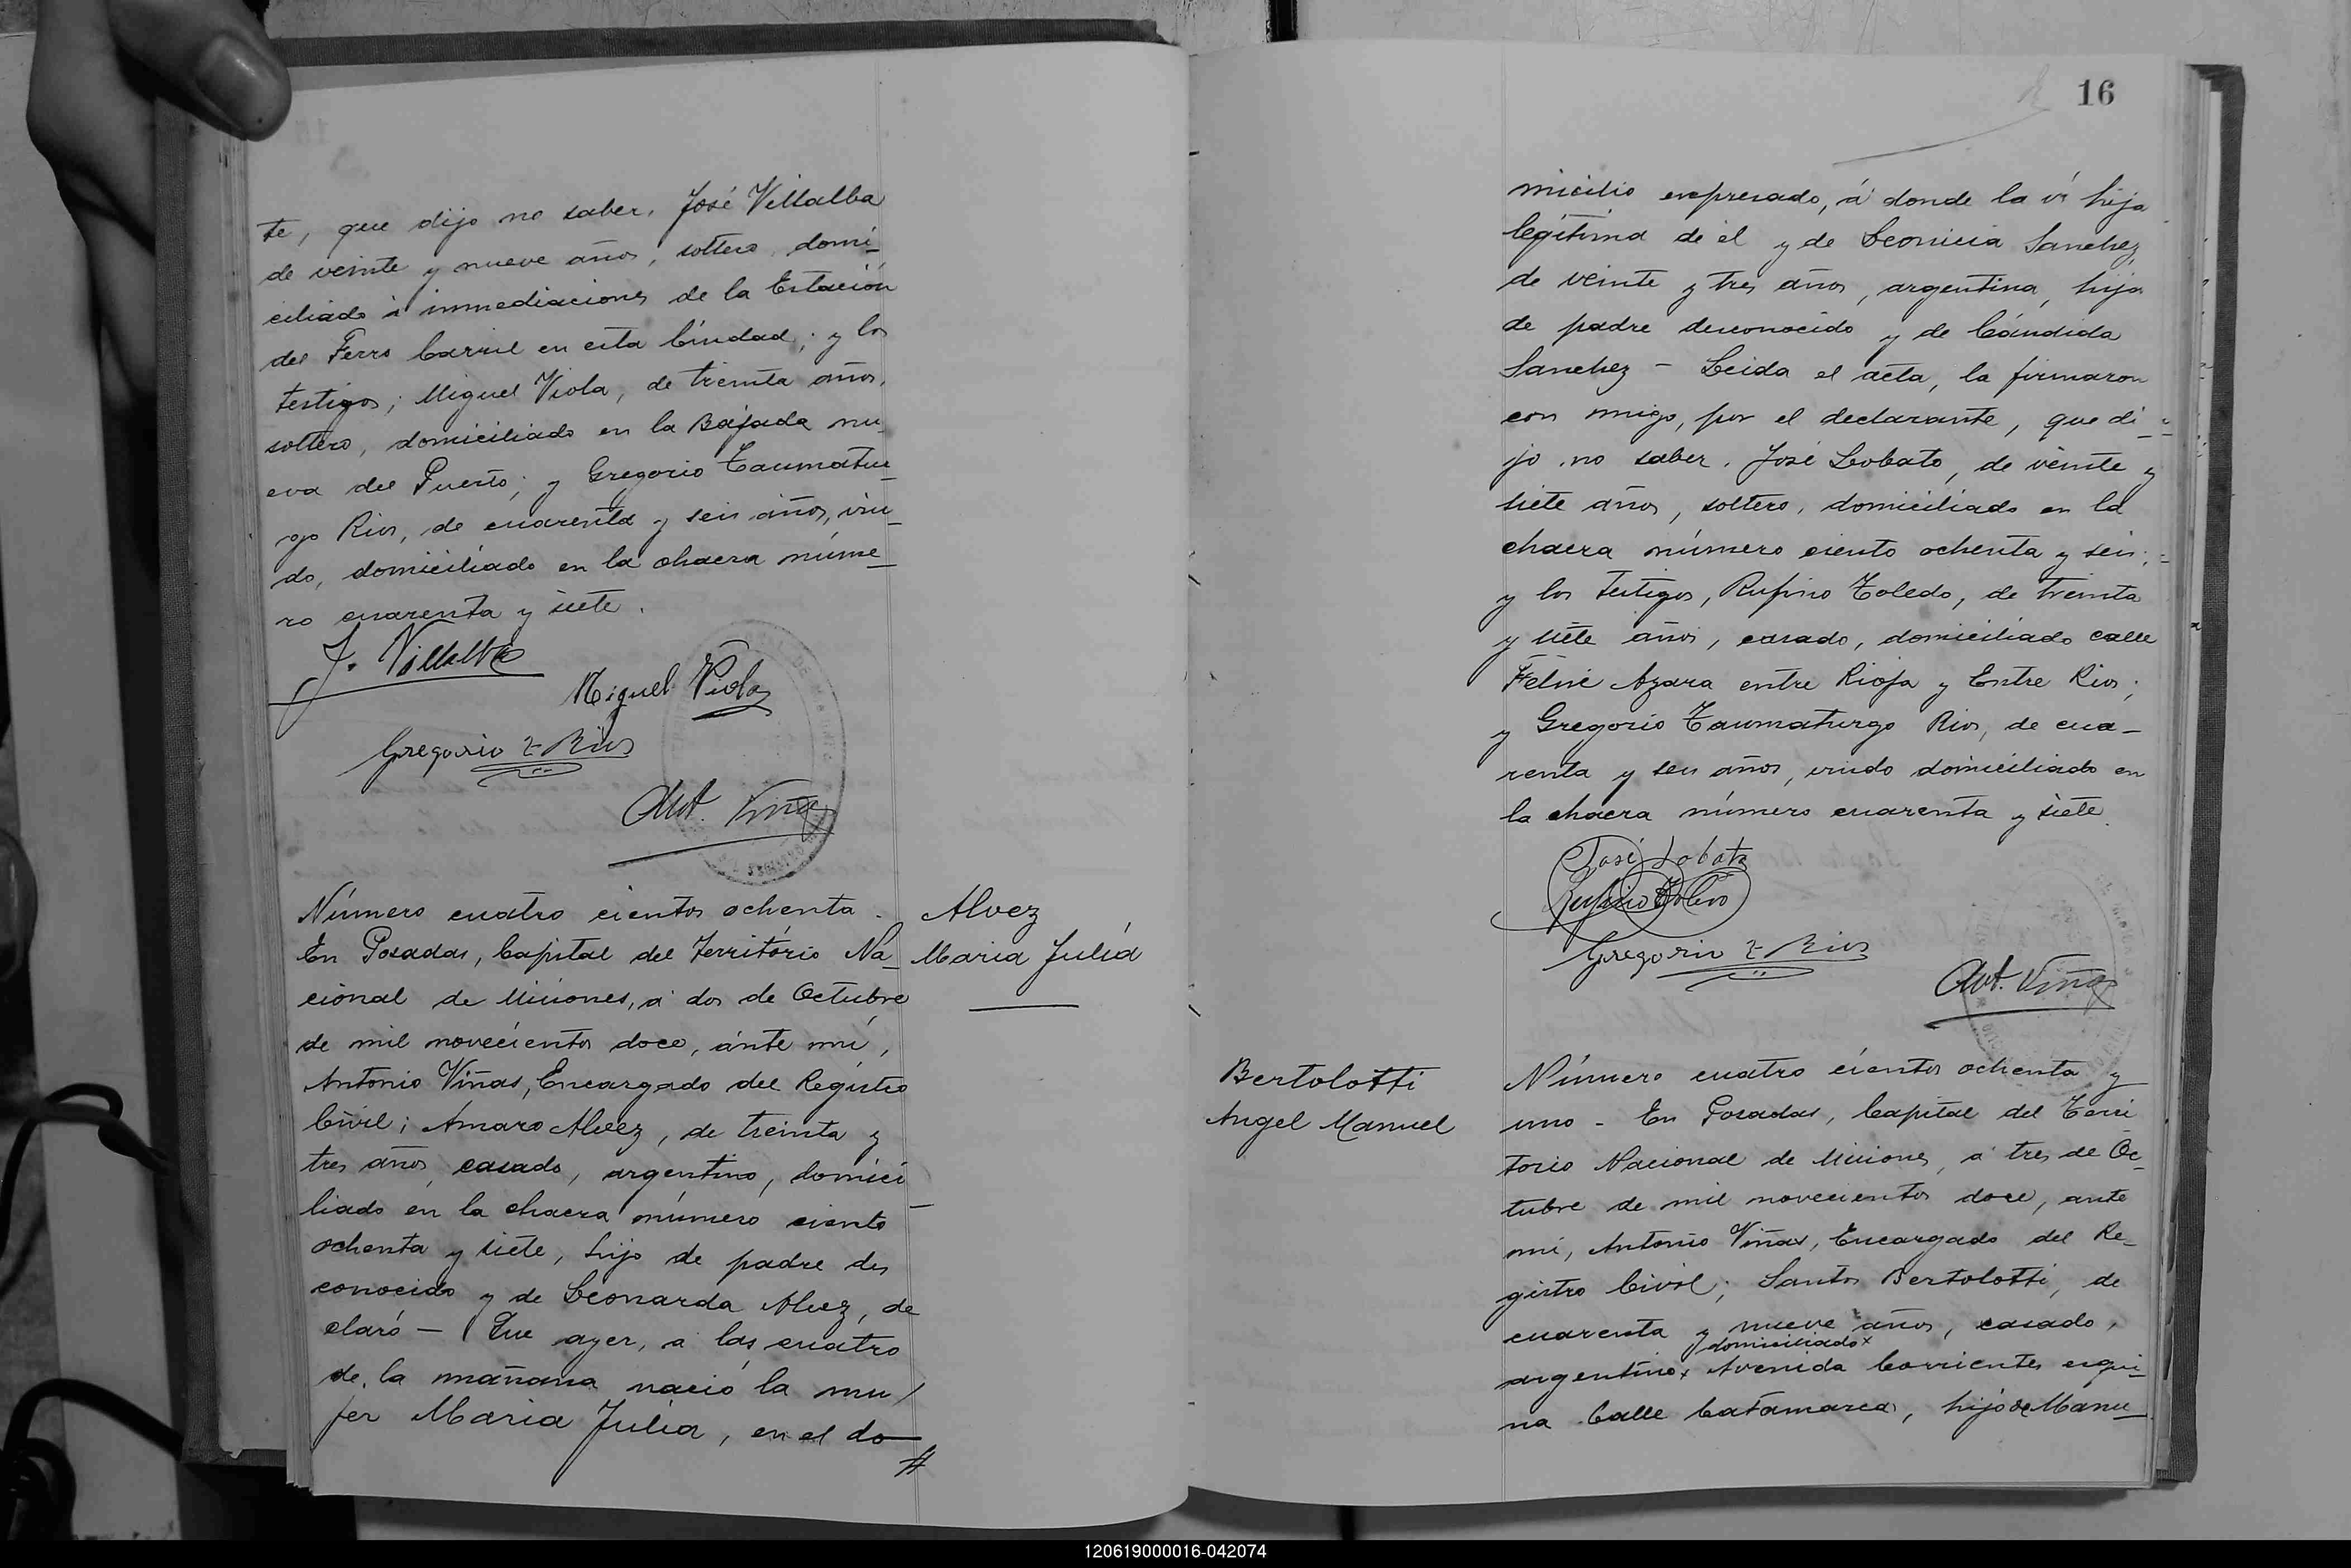 te, que dijo no saber, José Villalba
de veinte y nueve años, soltero, domi_
ciliado á inmediaciones de la Estación
del Ferro Carril en esta Ciudad; y los
testigos; Miguel Viola, de treinta años,
soltero, domiciliado en la Bajada nu_
eva del Puerto; y Gregorio Taumatur_
go Rios, de cuarenta y seis años, viu_
do, domiciliado en la chacra núme_
ro cuarenta y siete.
J. Villalba
Miguel Viola
Gregorio T. Rios
Ant. Viñas
Número cuatro cientos ochenta.
En Posadas, Capital del Territorio Na_
cional de Misiones, á dos de Octubre
de mil novecientos doce, ante mí,
Antonio Viñas, Encargado del Registro
Civil; Amaro Alvez, de treinta y
tres años, casado, argentino, domici_
liado en la chacra número ciento
ochenta y siete, hijo de padre des
conocido y de Leonarda Alvez, de
claró — Que ayer, a las cuatro
de la mañana nació la mu/
jer Maria Julia, en el do—
#
Alvez
Maria Julia
16
micilio expresado, á donde la ví hija
legítima de él y de Leonicia Sanchez,
de veinte y tres años, argentina, hija
de padre desconocido y de Cándida
Sanchez - Leida el acta, la firmaron
con migo, por el declarante, que di_
jo no saber, José Lobato, de veinte y
siete años, soltero, domiciliado en la
chacra número ciento ochenta y seis;
y los testigos, Rufino Toledo, de treinta
y siete años, casado, domiciliado calle
Félix Azara entre Rioja y Entre Rios;
y Gregorio Taumaturgo Rios, de cua_
renta y seis años, viudo domiciliado en
la chacra número cuarenta y siete.
José Lobato
Rufino Toledo
Gregorio T. Rios
Ant. Viñas
Bertolotti
Angel Manuel
Número cuatro cientos ochenta y
uno - En Posadas, Capital del Terri
torio Nacional de Misiones, á tres de Oc_
tubre de mil novecientos doce, ante
mí, Antonio Viñas, Encargado del Re_
gistro Civil; Santos Bertolotti, de
cuarenta y nueve años, casado,
domiciliado x
argentino x Avenida Corrientes esqui_
na Calle Catamarca, hijo de Manu_
120619000016-042074